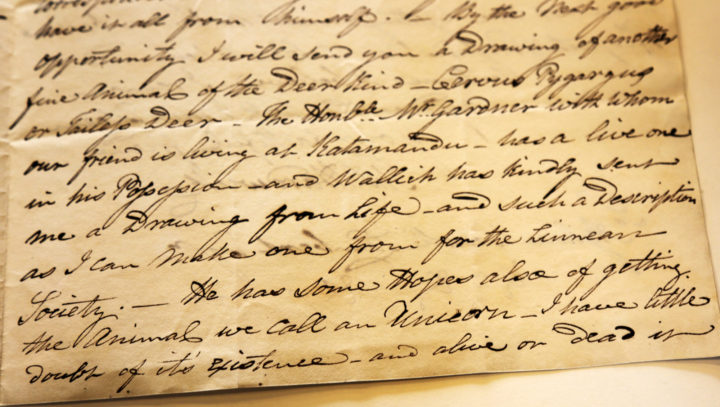 have it all from himself. – By the Next good
opportunity I will send you a Drawing of another
fine Animal of the Deer Kind – Cervus Pygargus
or Tailess Deer – The Honble. Mr. Gardner with whom
our friend is living at Katamandu – has a live one
in his Possession – and Wallich has kindly sent
me a Drawing from Life – and such a Description
as I can make one from for the Linnean
Society. – He has some Hopes also of getting
the Animal we call an Unicorn – I have little
doubt of it's Existence – and alive or dead it